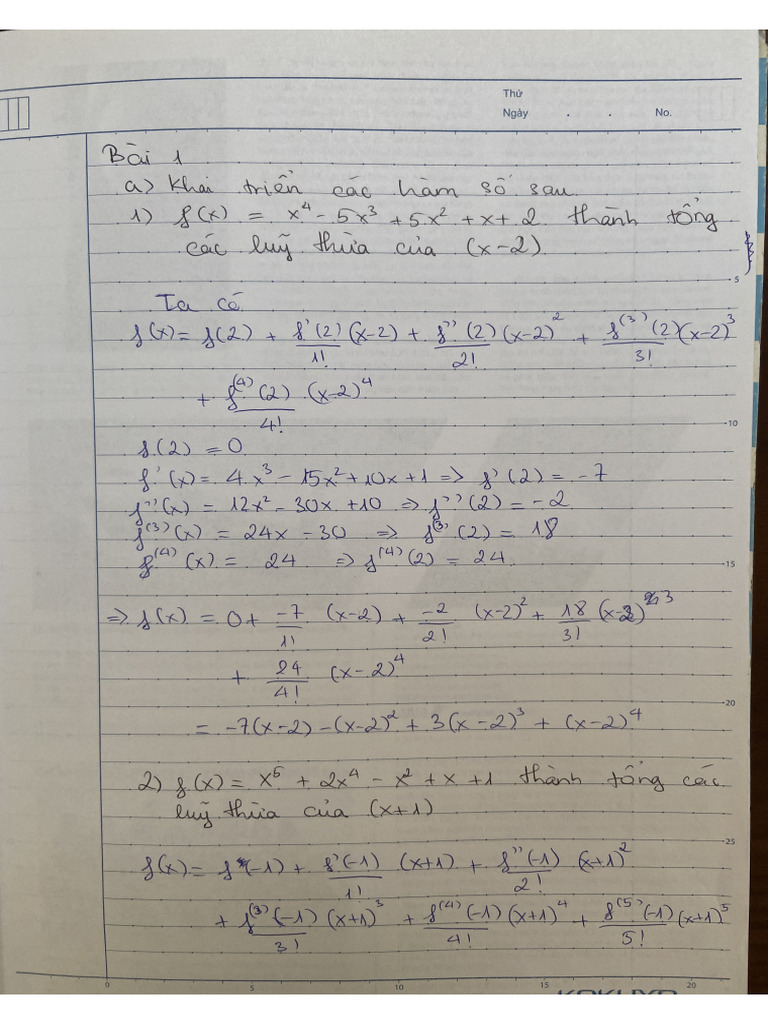 Thứ
Ngày . . No.
Bài 1
a) Khai triển các hàm số sau.
1) f(x) = x⁴ - 5x³ + 5x² + x + 2 thành tổng
các luỹ thừa của (x-2)
Ta có
f(x) = f(2) + f'(2)/1! (x-2) + f''(2)/2! (x-2)² + f⁽³⁾(2)/3! (x-2)³
+ f⁽⁴⁾(2)/4! (x-2)⁴
f(2) = 0
f'(x) = 4x³ - 15x² + 10x + 1 => f'(2) = -7
f''(x) = 12x² - 30x + 10 => f''(2) = -2
f⁽³⁾(x) = 24x - 30 => f⁽³⁾(2) = 18
f⁽⁴⁾(x) = 24 => f⁽⁴⁾(2) = 24
=> f(x) = 0 + -7/1! (x-2) + -2/2! (x-2)² + 18/3! (x-2)³
+ 24/4! (x-2)⁴
= -7(x-2) - (x-2)² + 3(x-2)³ + (x-2)⁴
2) f(x) = x⁵ + 2x⁴ - x² + x + 1 thành tổng các
luỹ thừa của (x+1)
f(x) = f(-1) + f'(-1)/1! (x+1) + f''(-1)/2! (x+1)²
+ f⁽³⁾(-1)/3! (x+1)³ + f⁽⁴⁾(-1)/4! (x+1)⁴ + f⁽⁵⁾(-1)/5! (x+1)⁵
5
10
15
20
25
0 5 10 15 20
KOKUYO